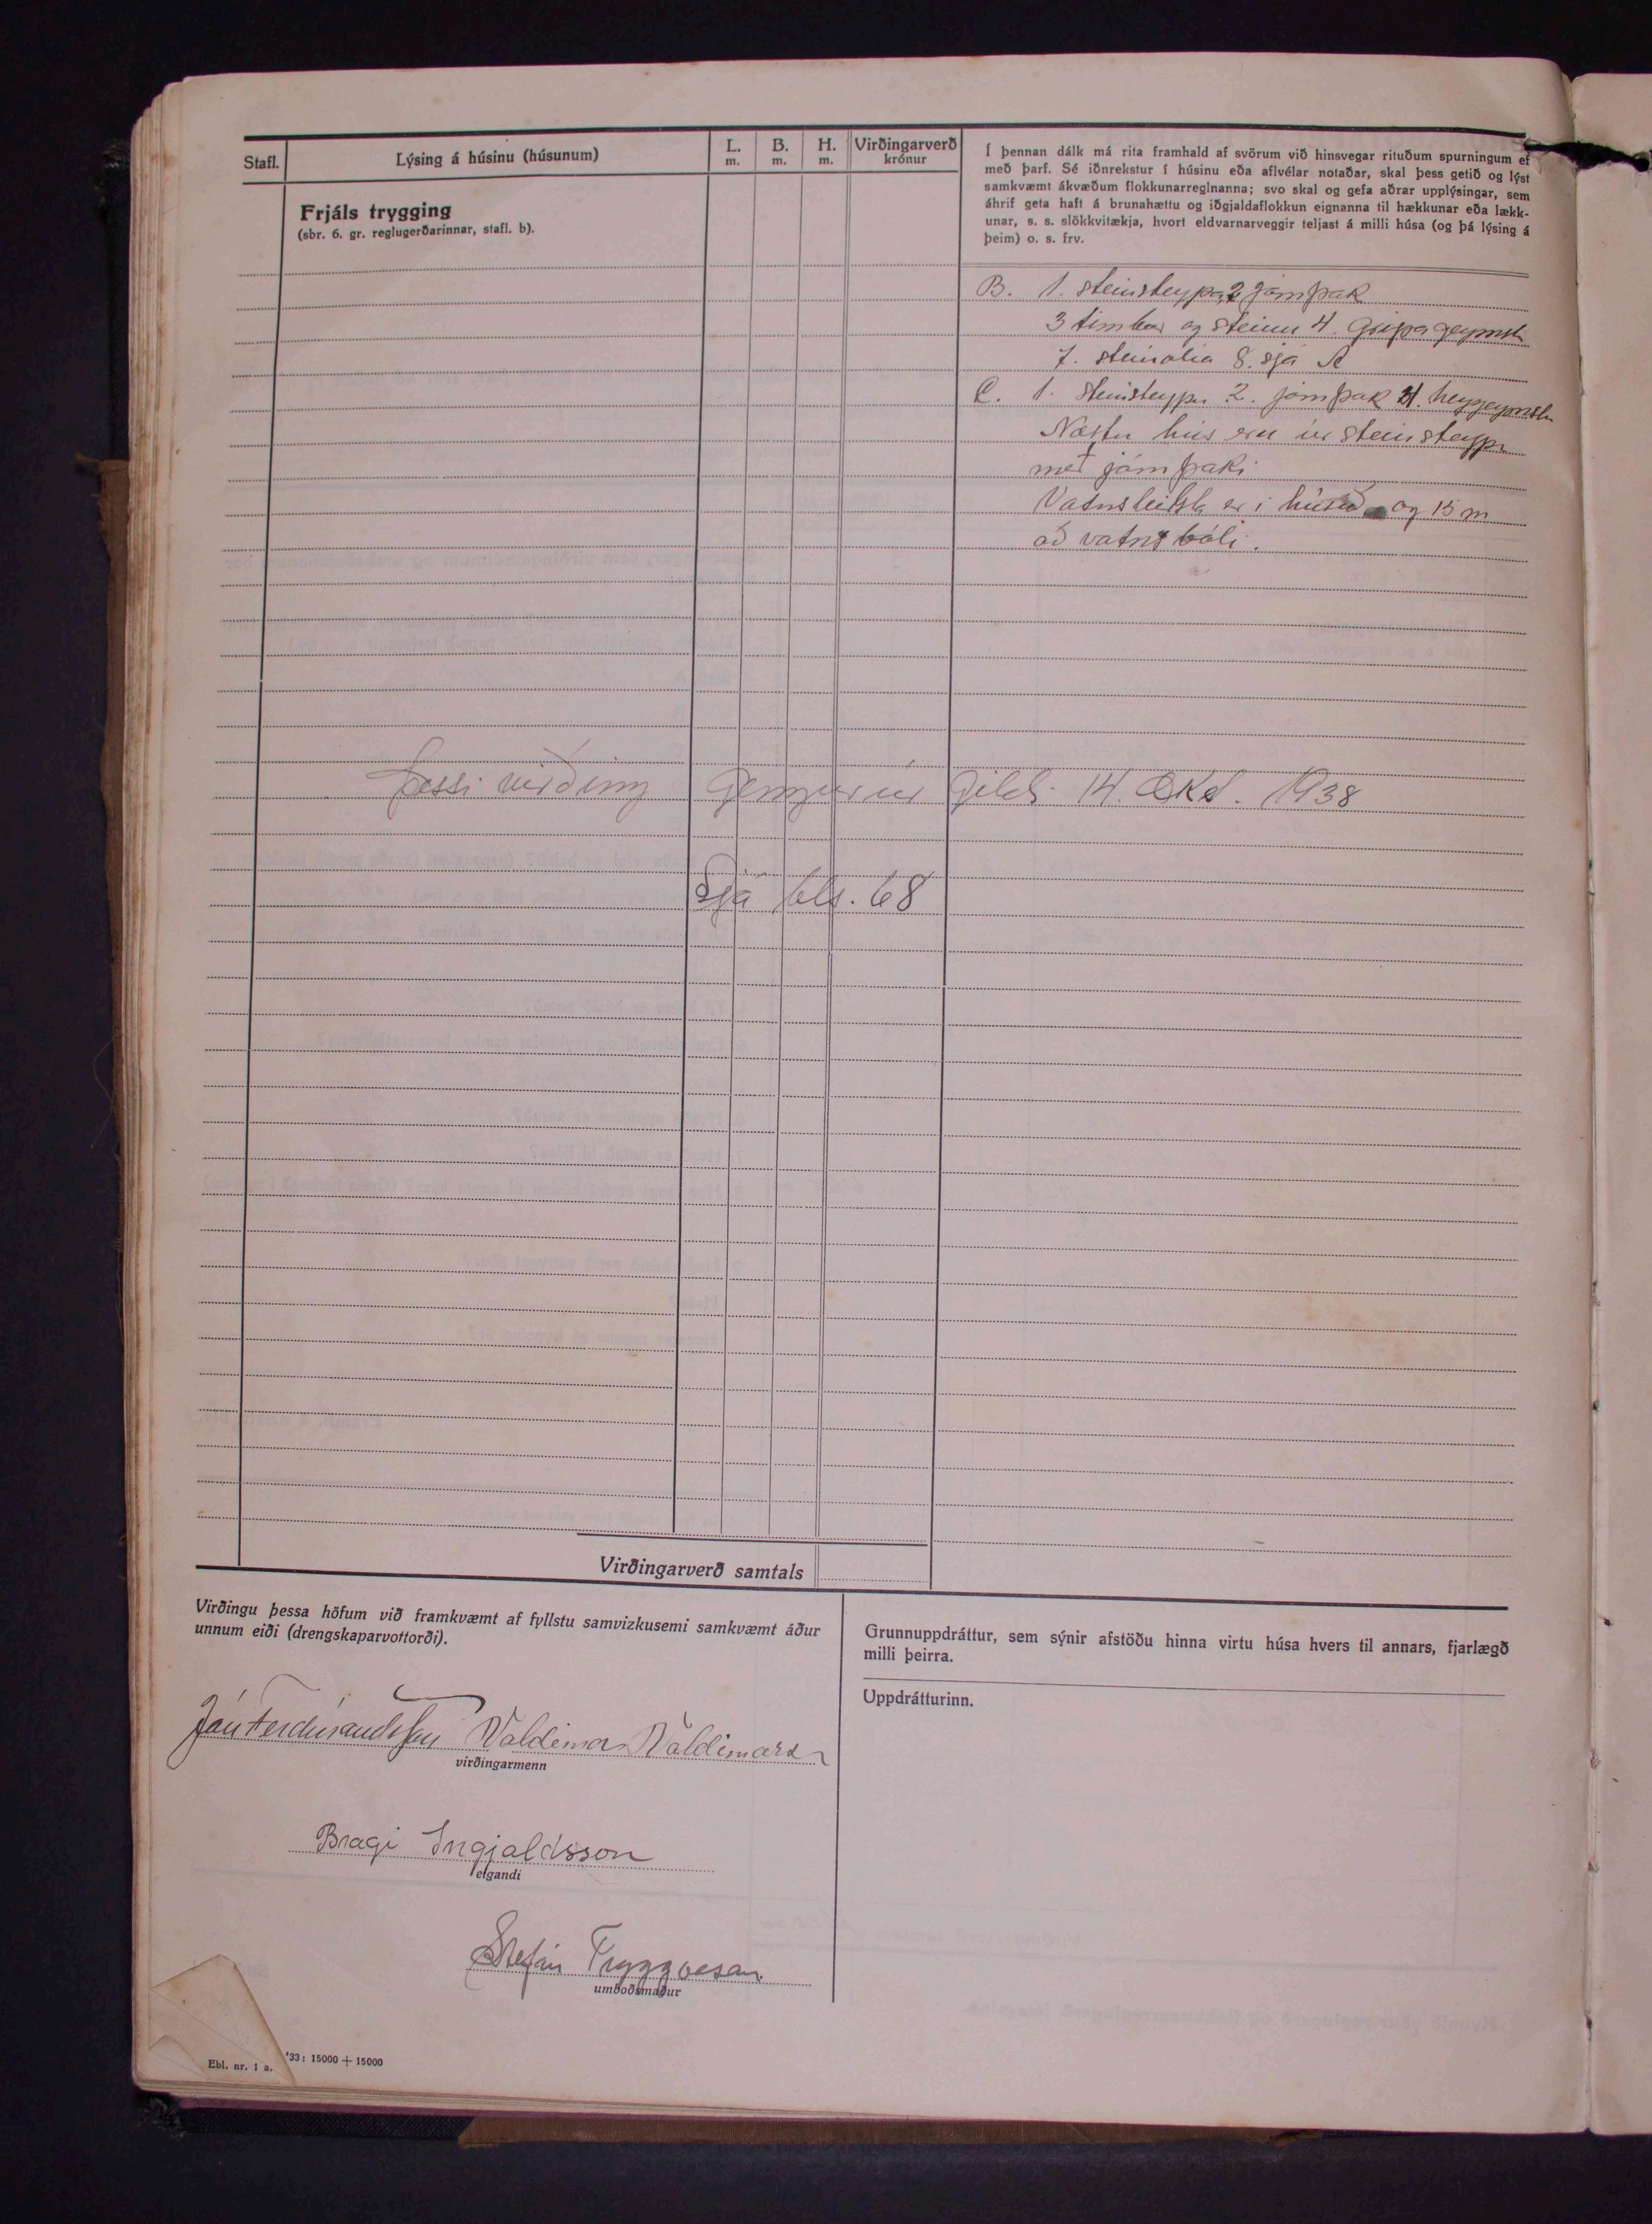 Stafl.
Lýsing á húsinu (húsunum)
L.
m.
B.
m.
H.
m.
Virðingarverð
krónur
Frjáls trygging
(sbr. 6. gr. reglugerðarinnar, stafl. b).
Í þennan dálk má rita framhald af svörum við hinsvegar rituðum spurningum ef
með þarf. Sé iðnrekstur í húsinu eða aflvélar notaðar, skal þess getið og lýst
samkvæmt ákvæðum flokkunarreglnanna; svo skal og gefa aðrar upplýsingar, sem
áhrif geta haft á brunahættu og iðgjaldaflokkun eignanna til hækkunar eða lækk-
unar, s. s. slökkvitækja, hvort eldvarnarveggir teljast á milli húsa (og þá lýsing á
þeim) o. s. frv.
B. 1. steinsteypa, 2 járnþak
3 timbur og steinn 4. Gripageymsla
7. steinolia 8. sjá A
C. 1. steinsteypa 2. járnþak 4. heygeymsla
Næstu hús eru úr steinsteypu
með járnþaki
Vatnsleiðsla er í húsið og 15 m
að vatnsbóli.
Þessi virðing gengur úr gildi 14. Okt. 1938
Sjá bls. 68
Virðingarverð samtals
Virðingu þessa höfum við framkvæmt af fyllstu samvizkusemi samkvæmt áður
unnum eiði (drengskaparvottorði).
Jón Ferdínandsson Valdimar Valdimarsson
virðingarmenn
Bragi Ingjaldsson
eigandi
Stefán Tryggvason
umboðsmaður
Grunnuppdráttur, sem sýnir afstöðu hinna virtu húsa hvers til annars, fjarlægð
milli þeirra.
Uppdrátturinn.
Ebl. nr. 1 a. '33: 15000 + 15000